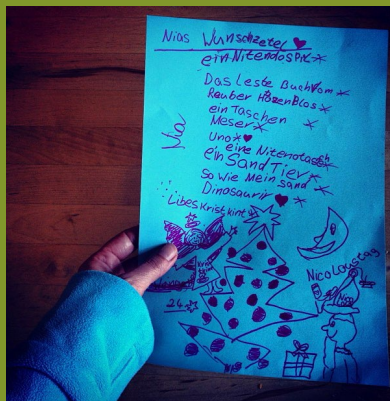 Nias Wunschzetel
ein Nitendospil
Das Leste Buch vom
Räuber Hozenblos
ein Taschen
Meser
Uno
eine Nitenotasch
ein Sand Tier
so wie Mein Sand
Dinosaurir
Nia
Libes Kristkint
Nicolaustag
24.